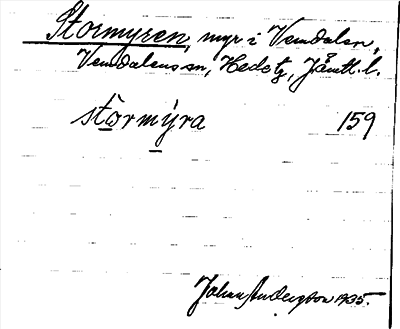 Stormyren, myr i Vemdalen,
Vemdalens sn, Hede tg, Jämtl. l.
stòrmýra 159
Johan Anderzson 1935.